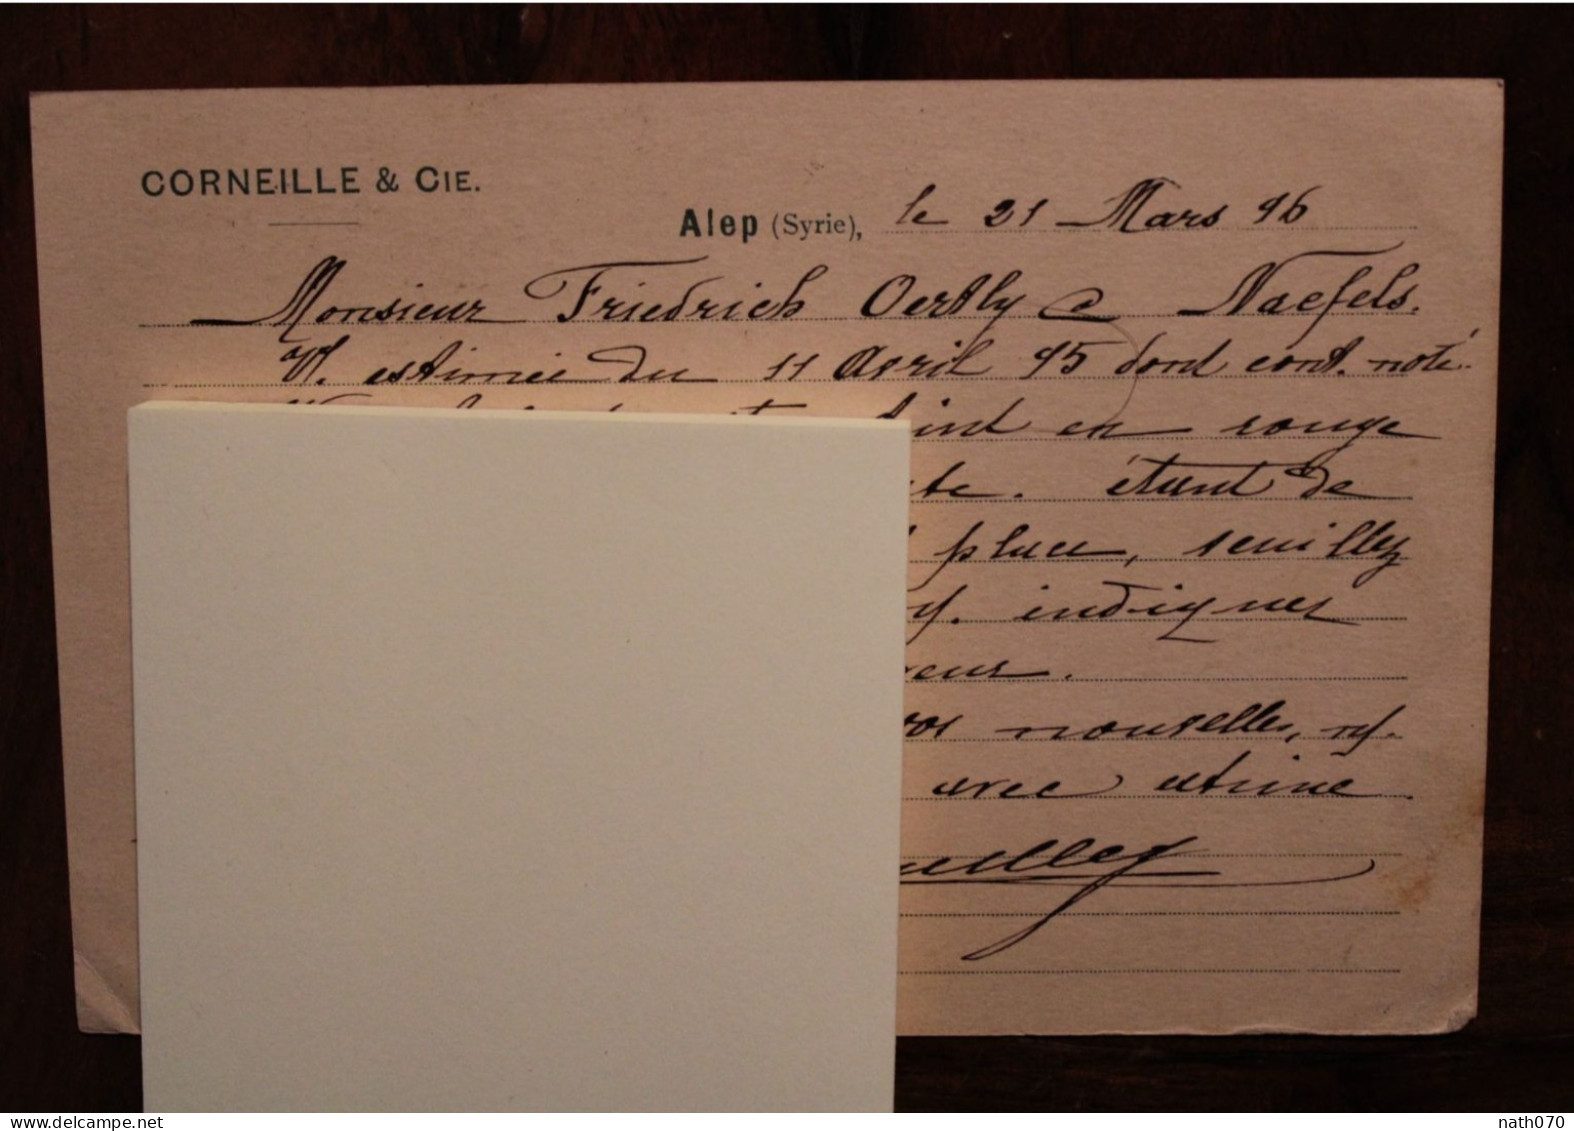 CORNEILLE & CIE.
Alep (Syrie), le 21 Mars 96
Monsieur Friedrich Oertly à Naefels.
V. estimée du 11 Avril 95 dont cont. noté.
en rouge
étant de
place, veuillez
indiquer
vos nouvelles,
avec estime
nath070